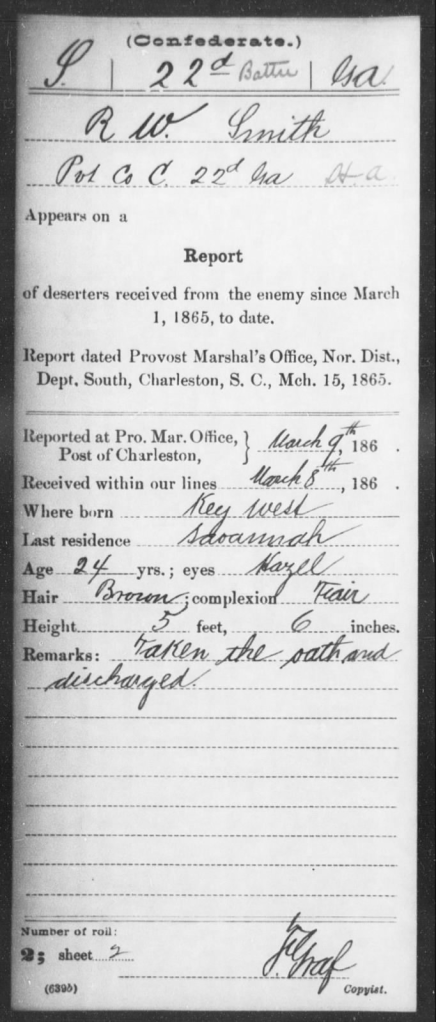 (Confederate.)
S. | 22d Battn | Ga.
R W. Smith
Pvt Co C. 22d Ga H. a.
Appears on a
Report
of deserters received from the enemy since March
1, 1865, to date.
Report dated Provost Marshal's Office, Nor. Dist.,
Dept. South, Charleston, S. C., Mch. 15, 1865.
Reported at Pro. Mar. Office, } March 9th, 186 .
Post of Charleston,
Received within our lines March 8th, 186 .
Where born Key West
Last residence Savannah
Age 24 yrs.; eyes Hazel
Hair Brown; complexion Fair
Height 5 feet, 6 inches.
Remarks: Taken the oath and
discharged.
Number of roll:
2; sheet 2
Graf
(6395) Copyist.